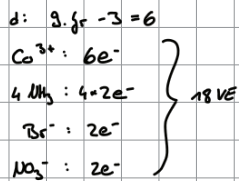 d: 9. Gr - 3 = 6
Co³⁺: 6e⁻
4 NH₃: 4·2e⁻
Br⁻: 2e⁻
NO₃⁻: 2e⁻
18 VE